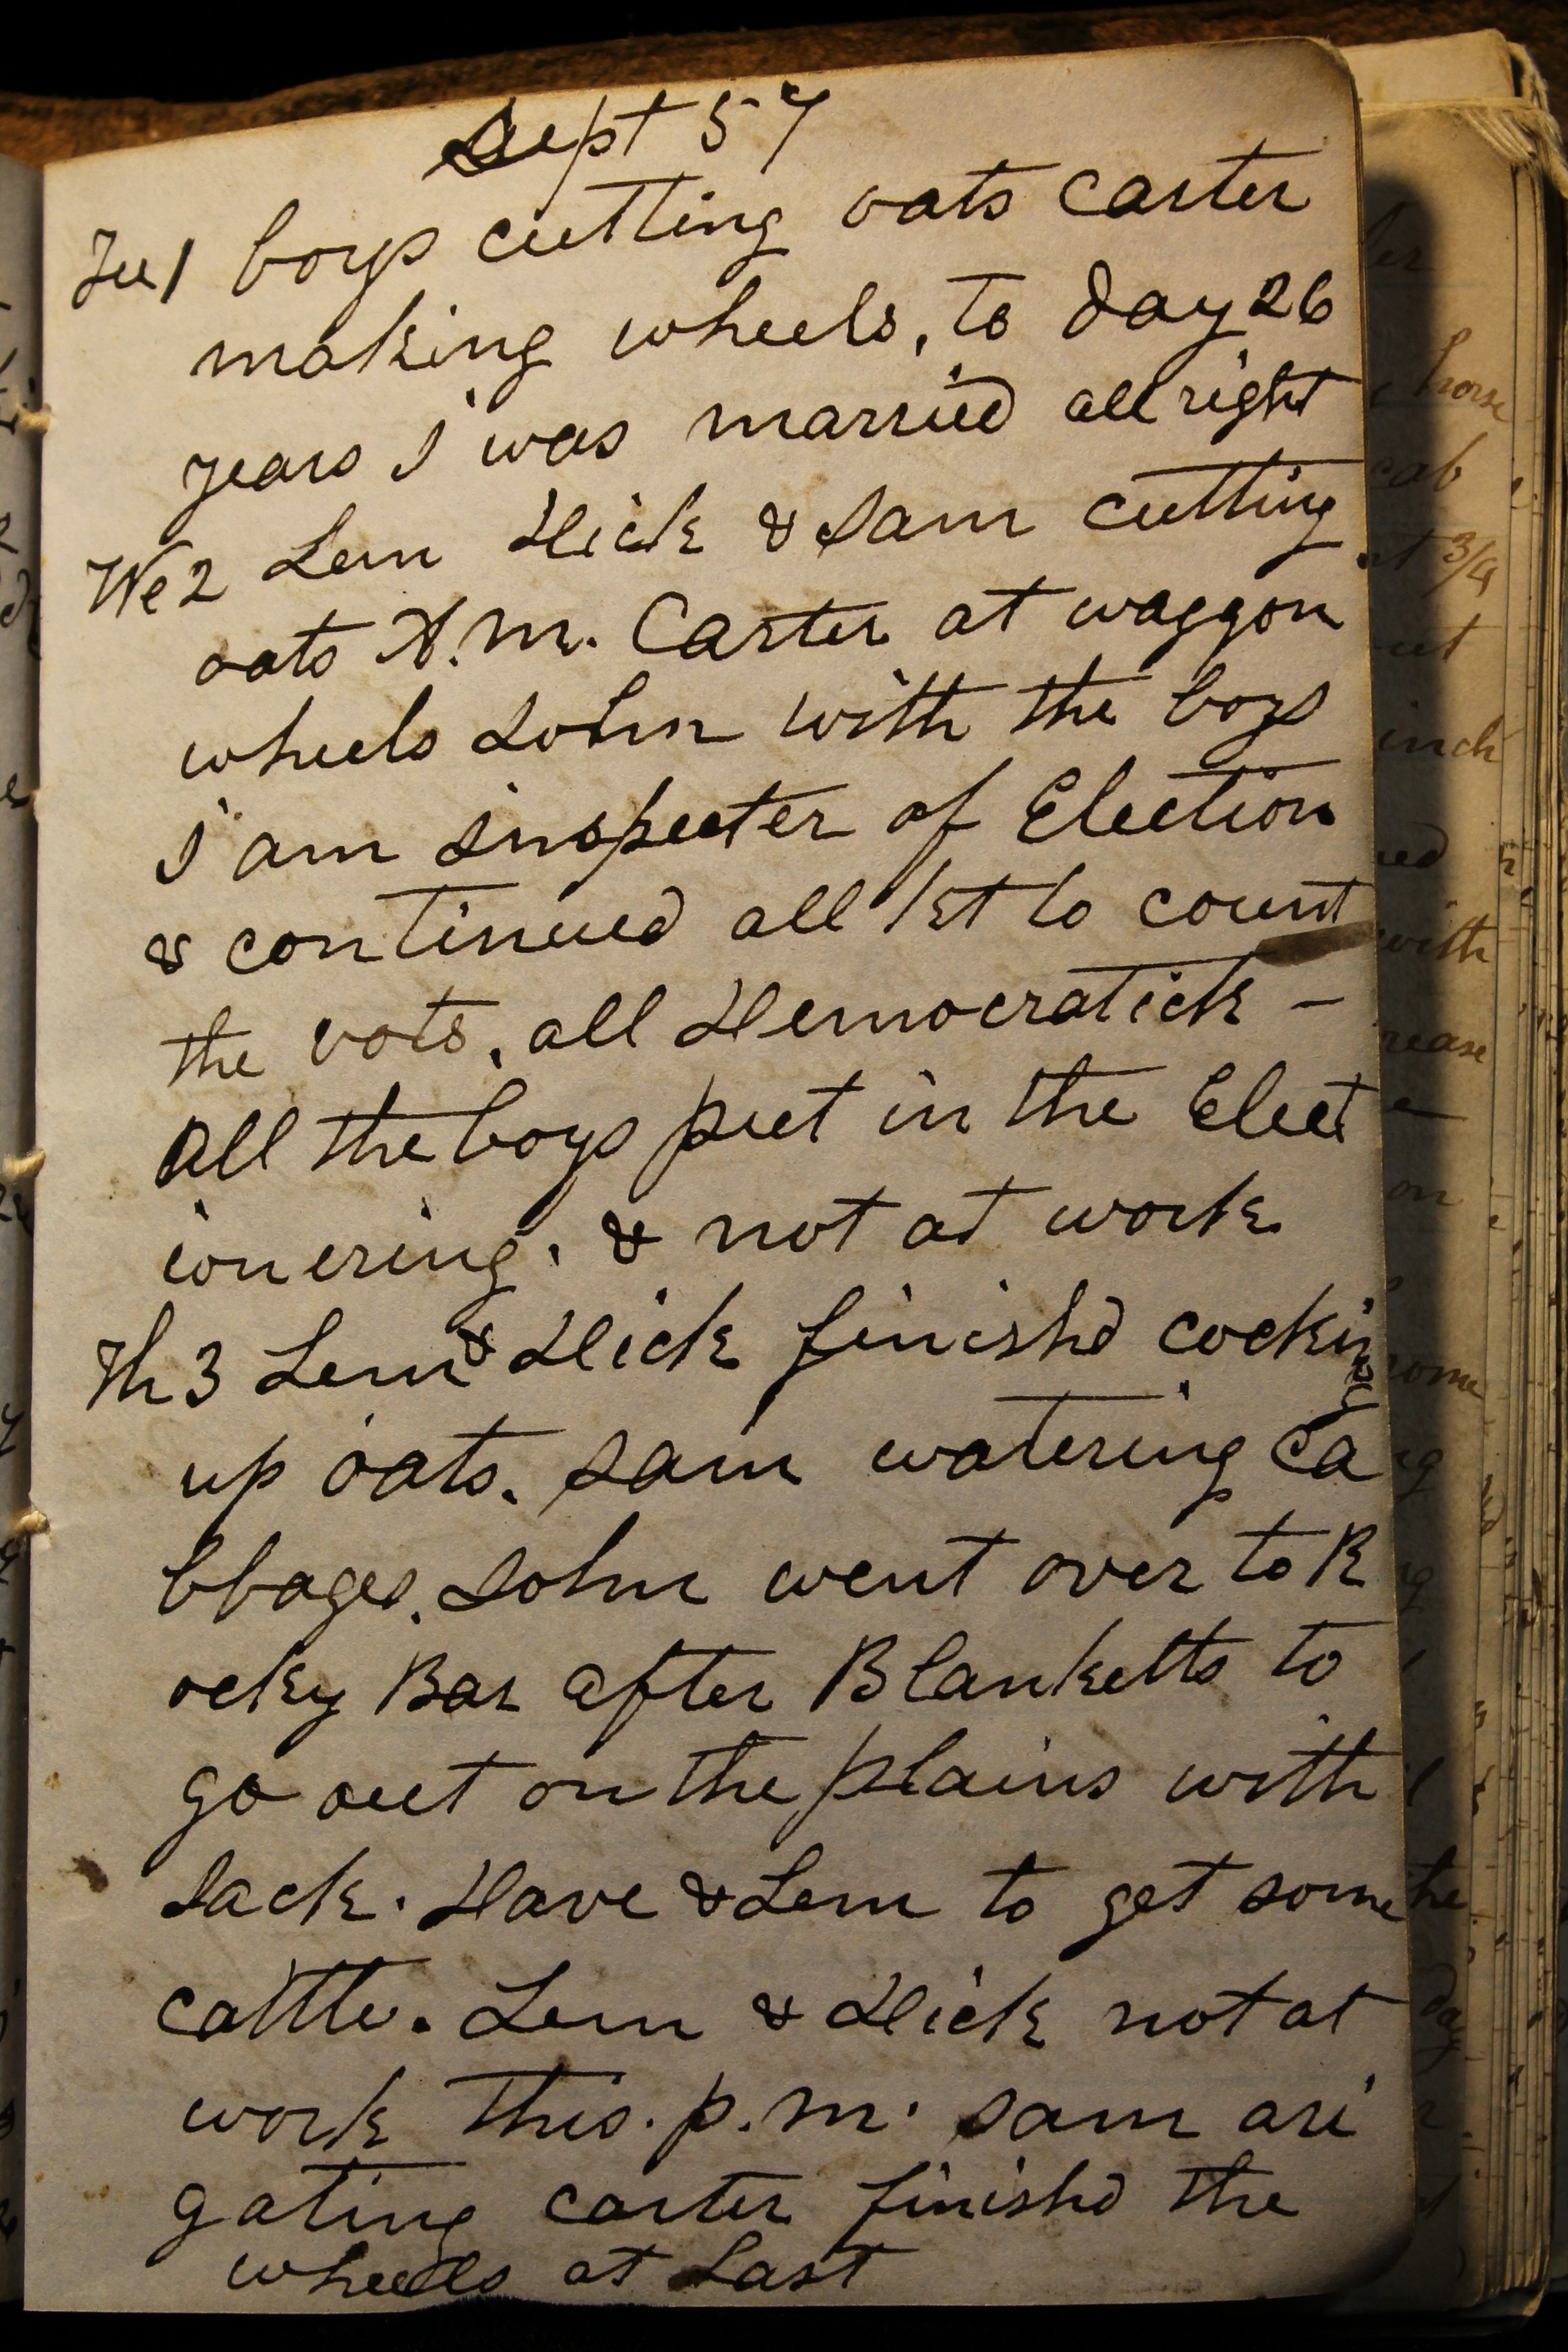 Sept 57
Tu 1 boys cutting oats Carter
making wheels, to day 26
years I was married all right
We 2 Lem Dick & Sam cutting
oats A.M. Carter at waggon
wheels John with the boys
I am inspecter of Election
& continued all 1st to count
the vots, all Democratick –
all the boys put in the Elect
ionering. & not at work
Th 3 Lem & Dick finishd cocking
up oats. Sam watering Ca
bbages. John went over to R
ocky Bar after Blanketts to
go out on the plains with
Jack. Dave & Lem to get some
cattle. Lem & Dick not at
work this. p.m. Sam ari
gating carter finishd the
wheels at Last
horse
3/4
inch
with